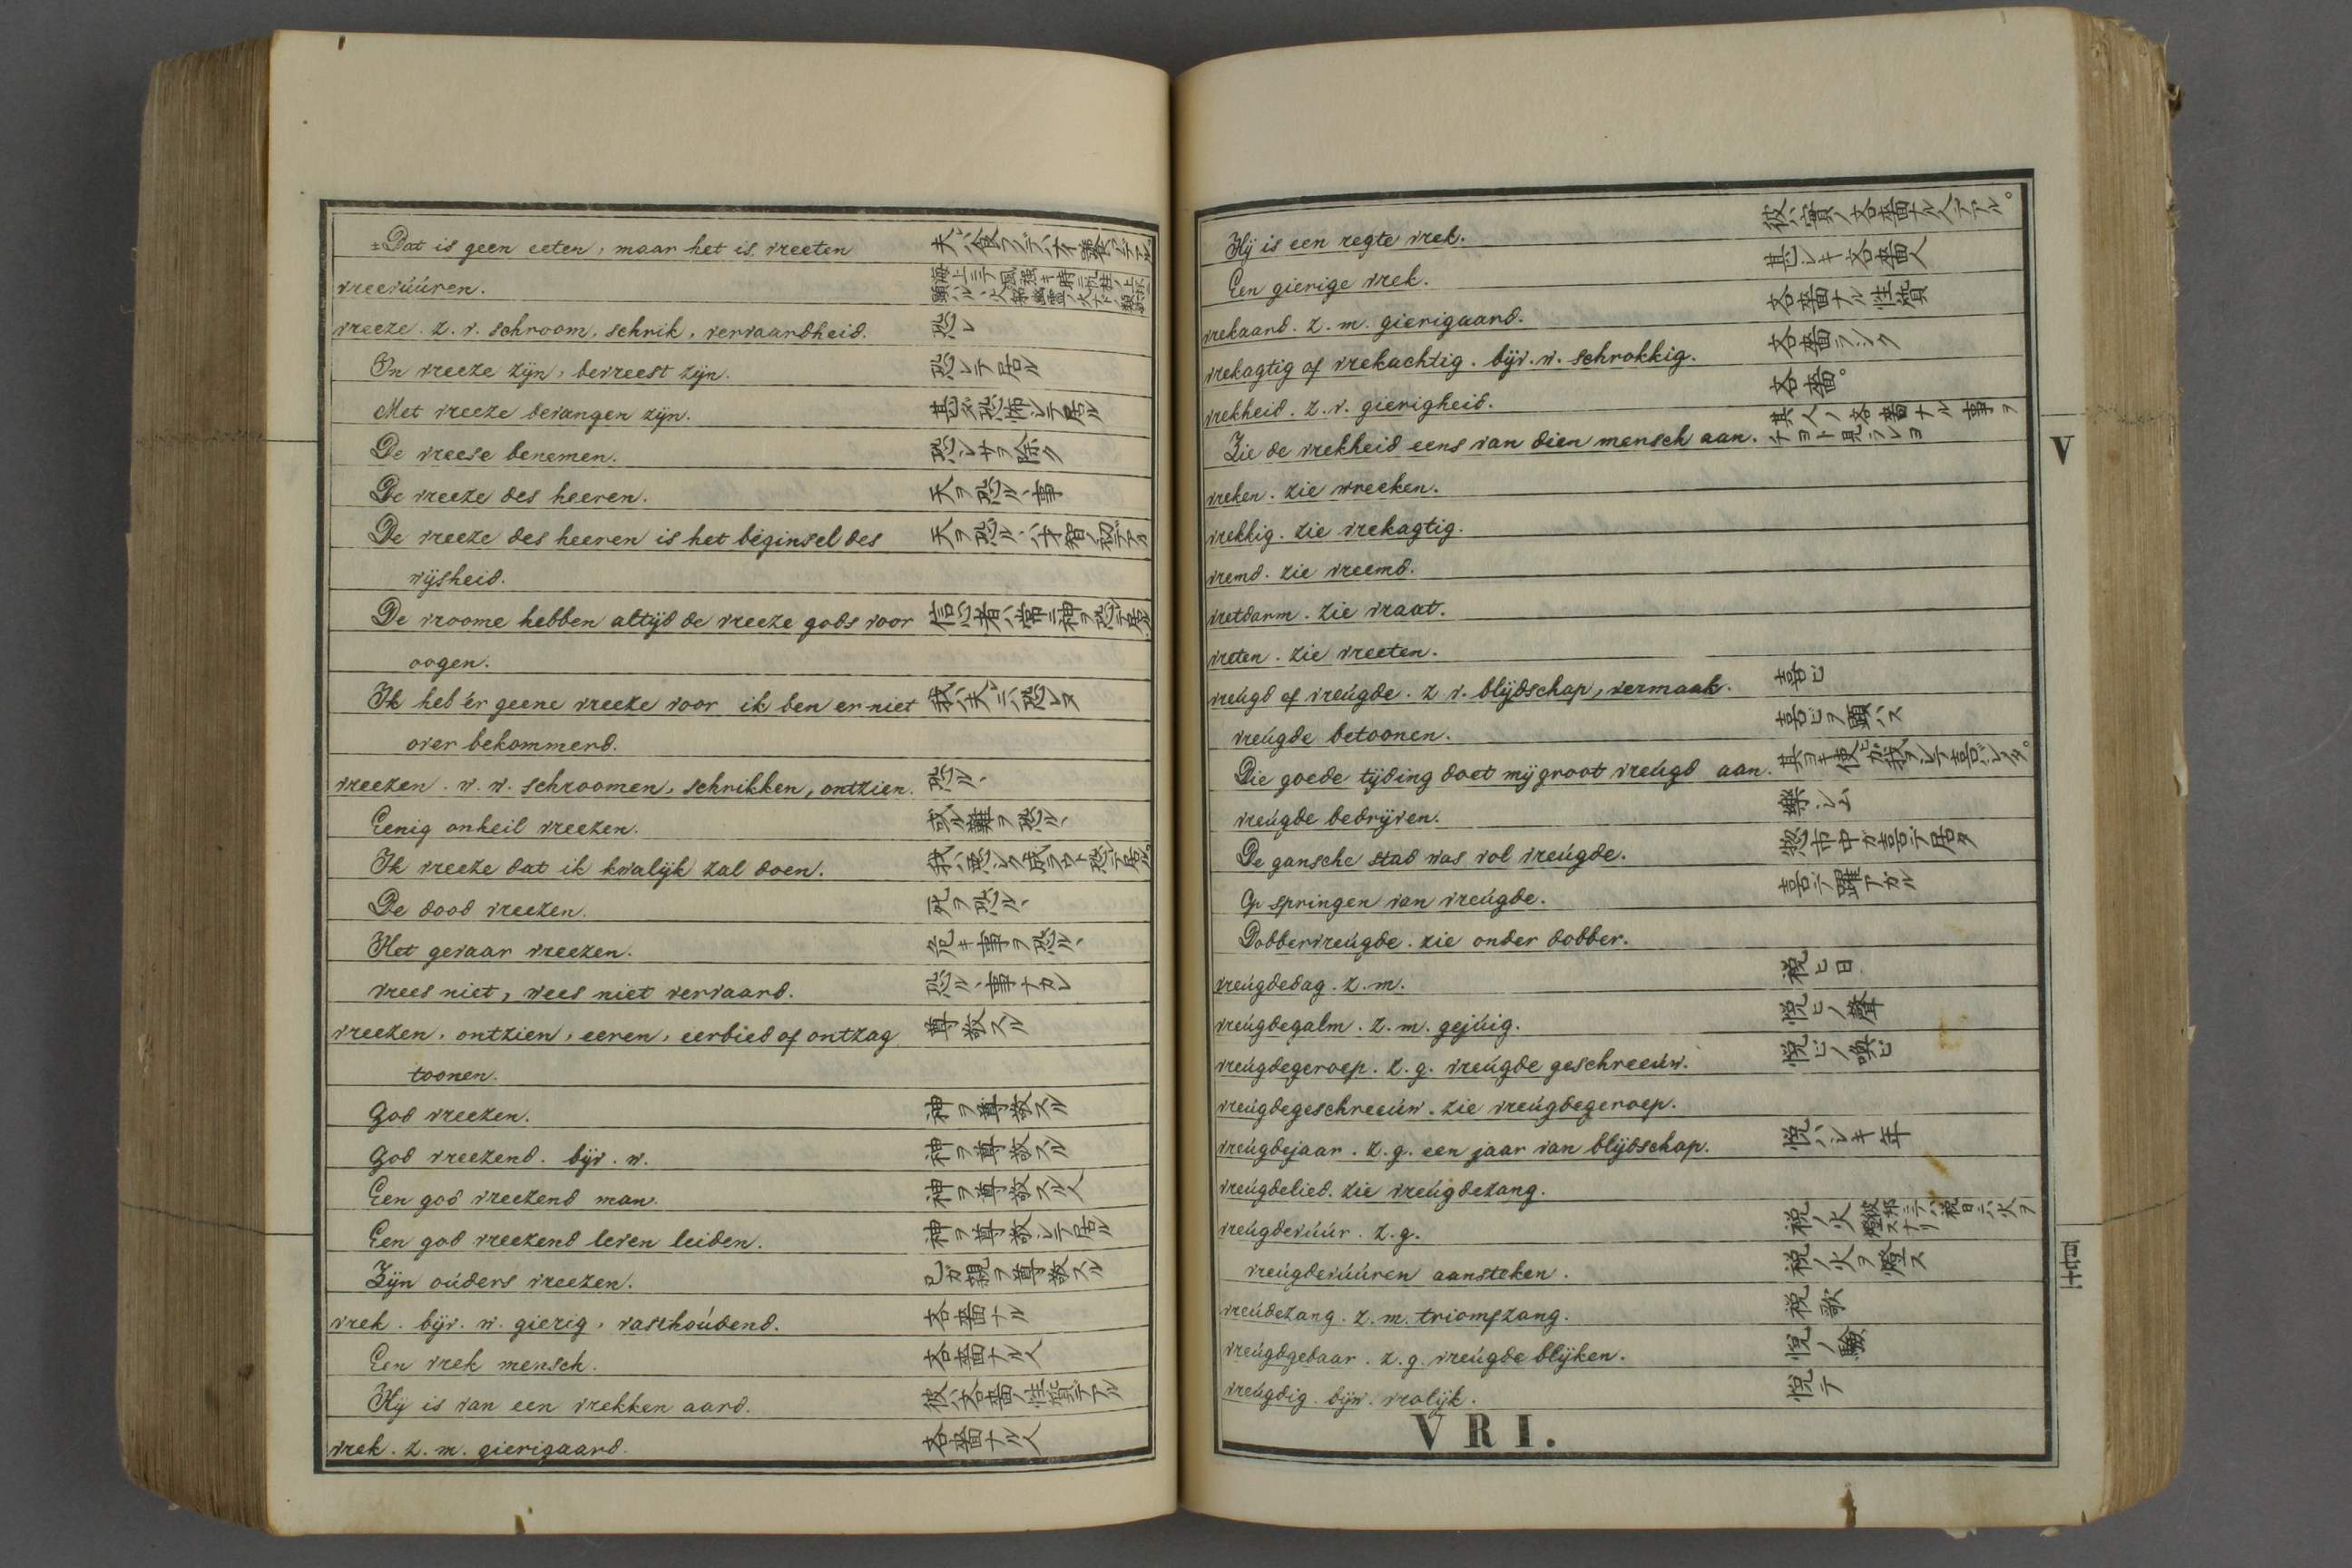 Dat is geen eeten, maar het is vreeten
vreevúúren.
vreeze. z. v. schroom, schrik, vervaardheid. 恐レ
In vreeze zijn, bevreest zijn. 恐レテ居ル
Met vreeze bevangen zijn. 甚ダ恐怖シテ居ル
De vreese benemen. 恐シサヲ除ク
De vreeze des heeren. 天ヲ恐ルヽ事
De vreeze des heeren is het beginsel des
wijsheid.
De vroome hebben altijd de vreeze gods voor
oogen.
Ik heb ér geene vreeze voor ik ben er niet
over bekommerd.
vreezen. w. w. schroomen, schrikken, ontzien. 恐ルヽ
Eenig onheil vreezen. 或ル難ヲ恐ルヽ
Ik vreeze dat ik kwalijk zal doen.
De dood vreezen. 死ヲ恐ルヽ
Het gevaar vreezen. 危キ事ヲ恐ルヽ
vrees niet, wees niet vervaard. 恐ルヽ事ナカレ
vreezen, ontzien, eeren, eerbied of ontzag 尊敬スル
toonen.
God vreezen. 神ヲ尊敬スル
God vreezend. bijv. w. 神ヲ尊敬スル
Een god vreezend man. 神ヲ尊敬スル人
Een god vreezend leven leiden. 神ヲ尊敬シテ居ル
Zijn oúders vreezen. 己ガ親ヲ尊敬スル
vrek. bijv. w. gierig, vasthoúdend. 吝嗇ナル
Een vrek mensch. 吝嗇ナル人
Hij is van een vrekken aard. 彼ハ吝嗇ノ性質デアル
vrek. z. m. gierigaard. 吝嗇ナル人
Hij is een regte vrek. 彼ハ實ノ吝嗇ナル人デアル。
Een gierige vrek. 甚シキ吝嗇人
vrekaard. z. m. gierigaard. 吝嗇ナル性質
vrekagtig of vrekachtig. bijv. w. schrokkig. 吝嗇ラシク
vrekheid. z. v. gierigheid. 吝嗇。
Zie de vrekheid eens van dien mensch aan. 其人ノ吝嗇ナル事ヲチヨト見ラレヨ
vreken. zie wreeken.
vrekkig. zie vrekagtig.
vremd. zie vreemd.
vretdarm. zie vraat.
vreten. zie vreeten.
vreúgd of vreúgde. z. v. blijdschap, vermaak. 喜ビ
vreúgde betoonen. 喜ビヲ顕ハス
Die goede tijding doet mij groot vreúgd aan.
vreúgde bedrijven. 樂シム
De gansche stad was vol vreúgde. 惣市中ガ喜デ居タ
Op springen van vreúgde. 喜デ躍アガル
Dobbervreúgde. zie onder dobber.
vreúgdedag. z. m. 祝ヒ日
vreúgdegalm. z. m. gejúig. 悦ビノ聲
vreúgdegeroep. z. g. vreúgde geschreeúw. 悦ビノ喚ビ
vreúgdegeschreeúw. zie vreúgdegeroep.
vreúgdejaar. z. g. een jaar van blijdschap. 悦ハシキ年
vreúgdelied. zie vreúgdezang.
vreúgdevúúr. z. g. 祝ノ火 彼邦ニテハ祝日ニハ火ヲ燈スナリ
vreúgdevúúren aansteken. 祝ノ火ヲ燈ス
vreúdezang. z. m. triomfzang. 祝歌
vreúgdgebaar. z. g. vreúgde blijken. 悦ノ驗
vreúgdig. bijw. vrolijk. 悦テ
VRI.
V